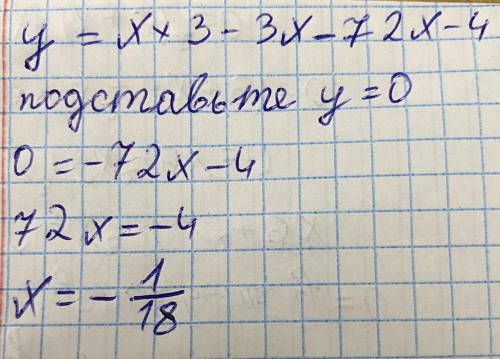 y = x × 3 - 3x - 72x - 4
подставьте y = 0
0 = -72x - 4
72x = -4
x = - 1/18